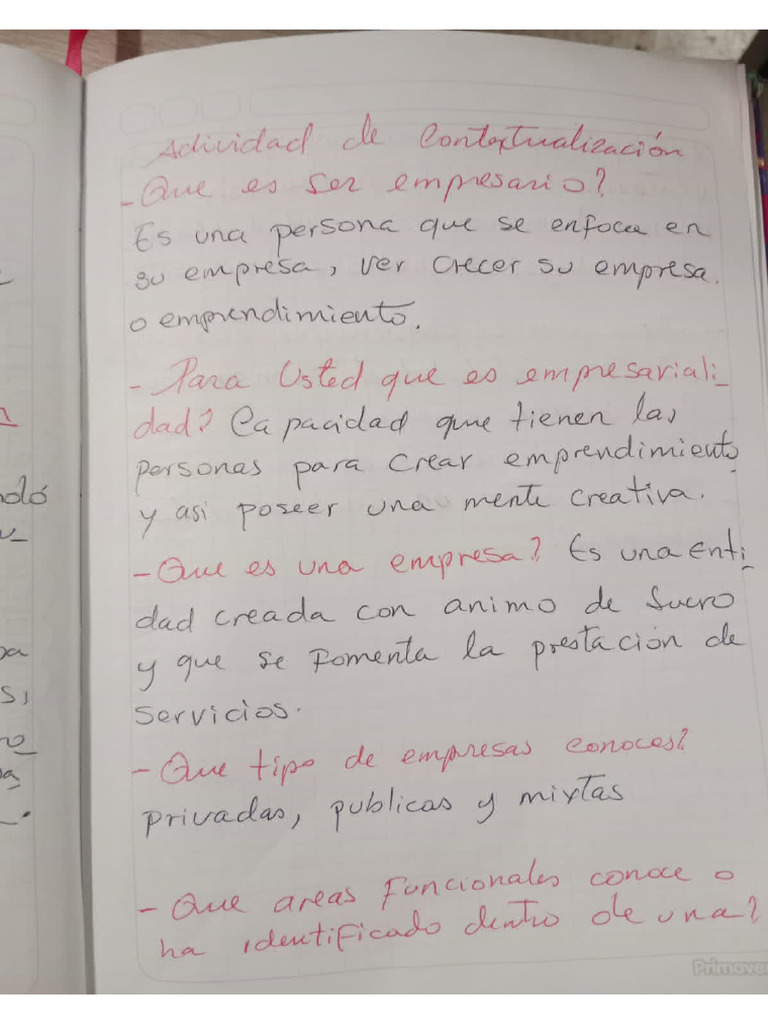 Actividad de Contextualización
- Que es ser empresario?
Es una persona que se enfoca en
su empresa, ver crecer su empresa.
o emprendimiento.
- Para Usted que es empresariali_
dad? Capacidad que tienen las
personas para crear emprendimiento
y asi poseer una mente creativa.
- Que es una empresa? Es una enti_
dad creada con animo de Lucro
y que se fomenta la prestación de
servicios.
- Que tipo de empresas conoces?
privadas, publicas y mixtas
- Que areas Funcionales conoce o
ha identificado dentro de una?